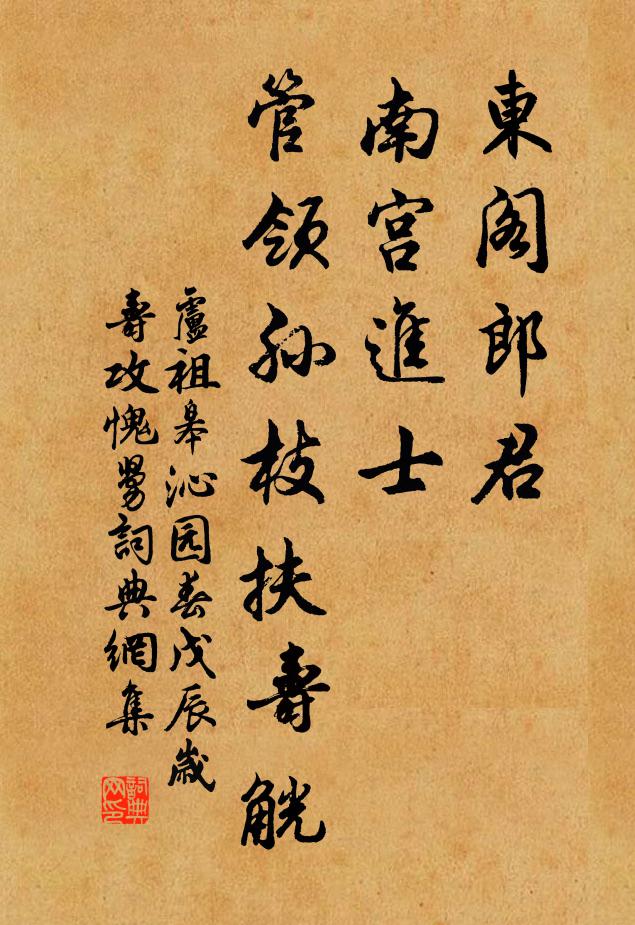 東閣郎君
南宮進士
管領孙枝扶壽觥
盧祖皋沁园春戊辰歲
壽攻愧舅詞典網集
詞典网印